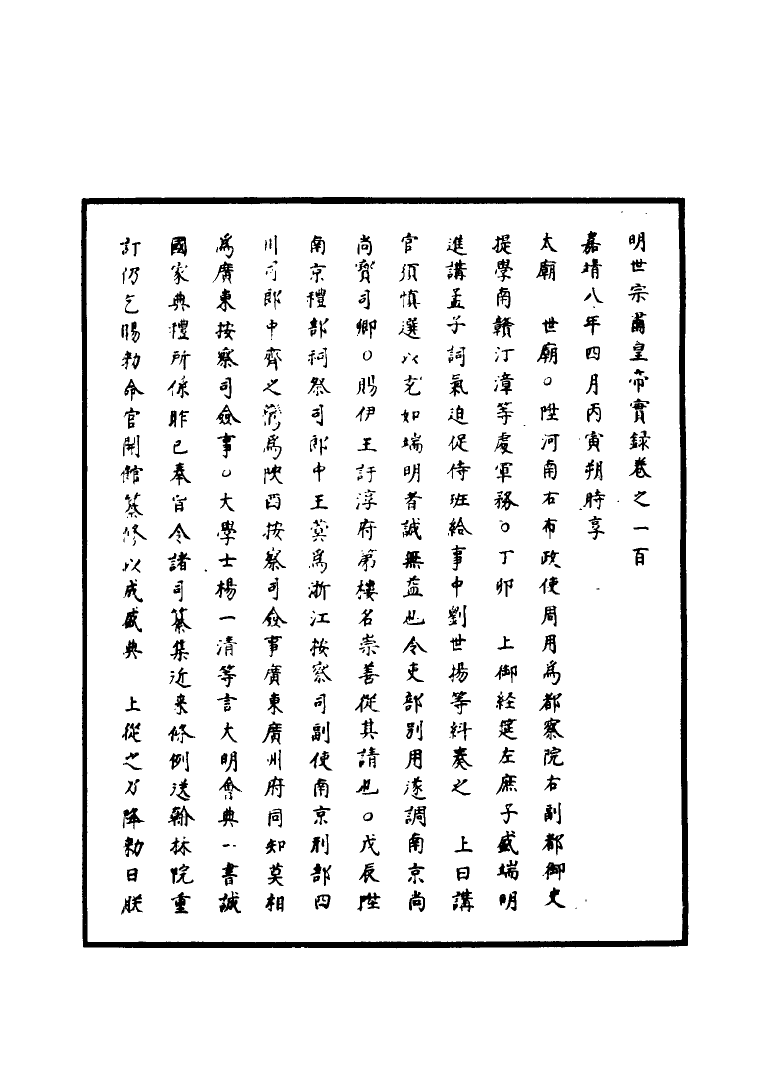 明世宗肅皇帝實録卷之一百
嘉靖八年四月丙寅朔時享
太廟　世廟○陞河南右布政使周用爲都察院右副都御史
提學南贛汀漳等處軍務○丁卯　上御経筵左庶子盛端明
進講孟子詞氣迫促侍班給事中劉世揚等糾奏之　上曰講
官須慎選以充如端明者誠無益也令吏部別用遂調南京尚
尚寳司卿○賜伊王訏淳府第樓名崇善從其請也○戊辰陞
南京禮部祠祭司郎中王蓂爲浙江按察司副使南京刑部四
川司郎中齊之鸞爲陝西按察司僉事廣東廣州府同知莫相
爲廣東按察司僉事○大學士楊一清等言大明會典一書誠
國家典禮所係昨已奉旨令諸司纂集近来條例送翰林院重
訂仍乞賜勑命官開館纂修以成盛典　上從之乃降勑曰朕